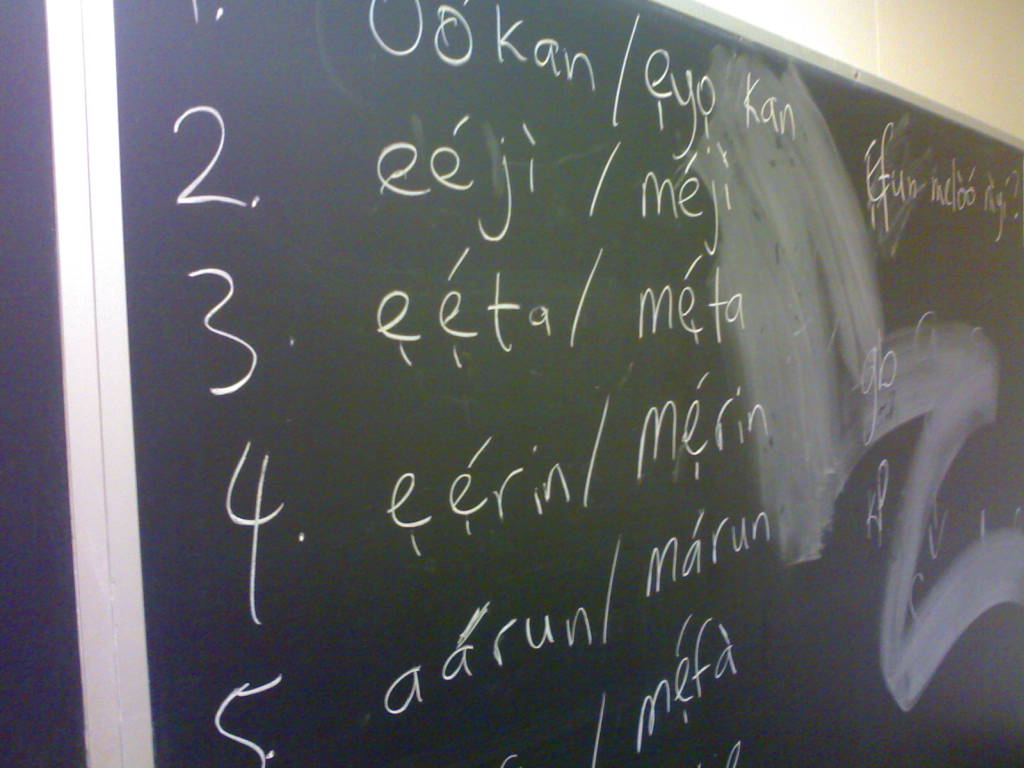 1. Oókan / ẹyọ kan
2. eéjì / méjì
Ẹfun melòó nìyí?
3. ẹẹ́ta / mẹ́ta
gb
4. ẹẹ́rin / mẹ́rin
kp
5. aárun / márun
/ mẹ́fà